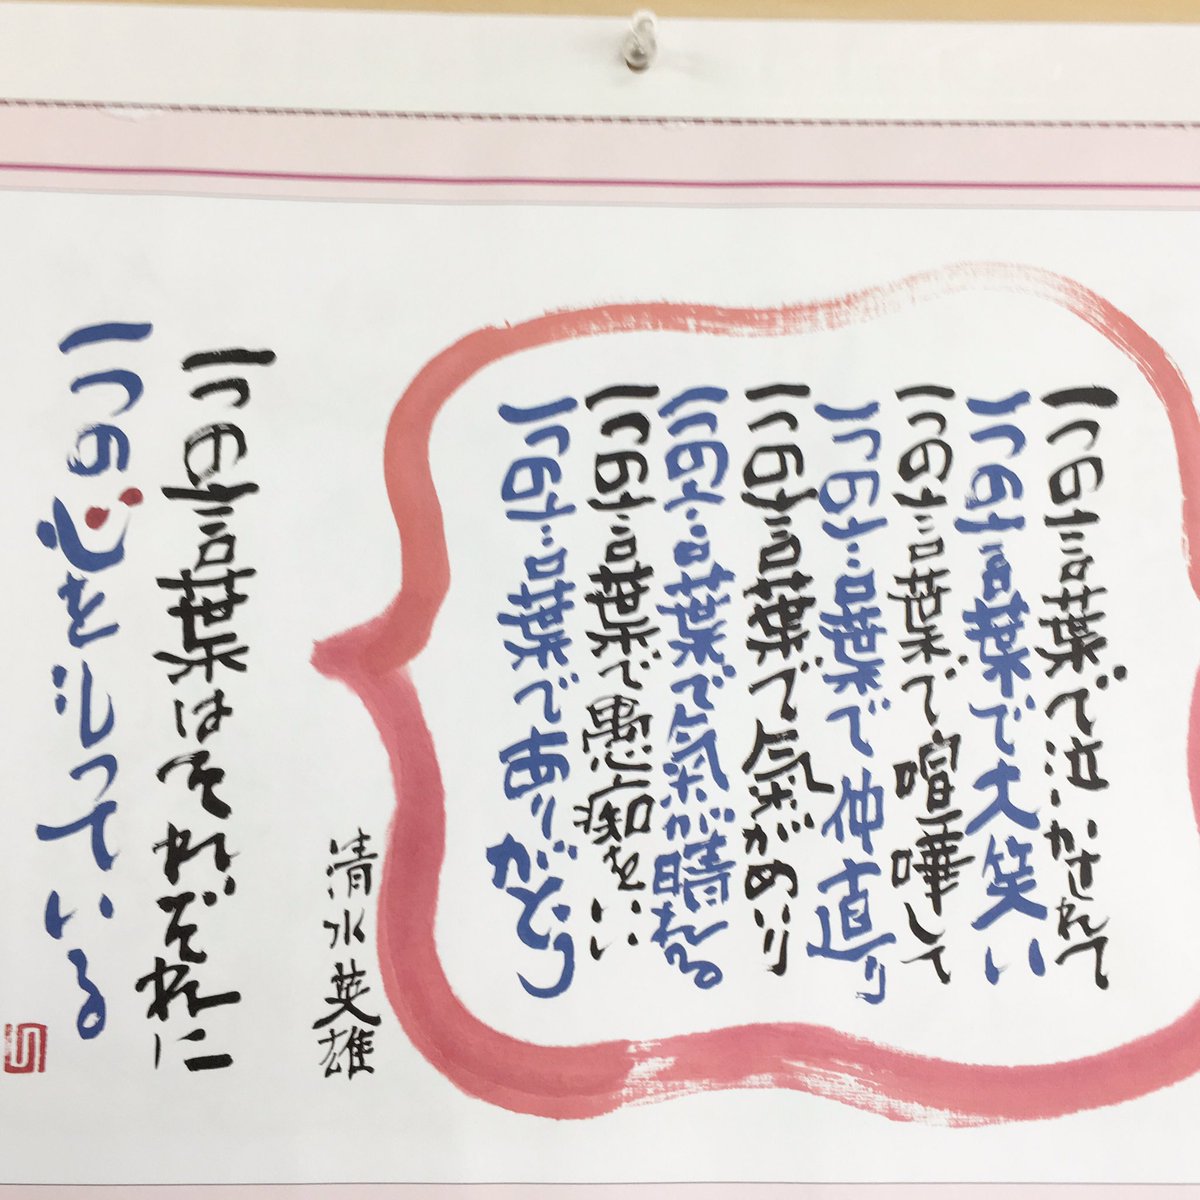 一つの言葉で泣かされて
一つの言葉で大笑い
一つの言葉で喧嘩して
一つの言葉で仲直り
一つの言葉で氣がめいり
一つの言葉で氣が晴れる
一つの言葉で愚痴をいい
一つの言葉でありがとう
清水英雄
一つの言葉はそれぞれに
一つの心をもっている